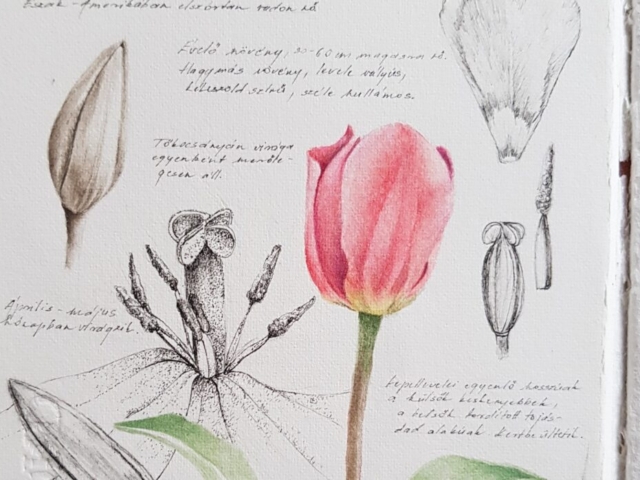 Észak-Amerikában elszórtan vadon nő.
Évelő növény, 30-60 cm magasra nő.
Hagymás növény, levele vályús,
kékeszöld színű, széle hullámos.
Tőkocsányán virága
egyenként merőle-
gesen áll.
Április - május
hónapban virágzik.
Lepellevelei egyenlő hosszúak
a külsők keskenyebbek,
a belsők fordított tojás-
dad alakúak